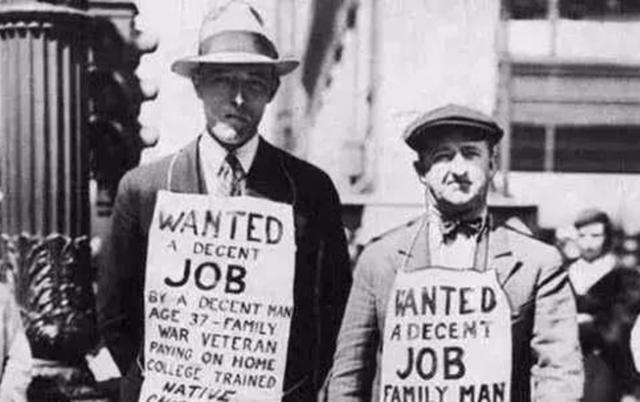 WANTED
A DECENT
JOB
BY A DECENT MAN
AGE 37-FAMILY
WAR VETERAN
PAYING ON HOME
COLLEGE TRAINED
NATIVE
WANTED
A DECENT
JOB
FAMILY MAN